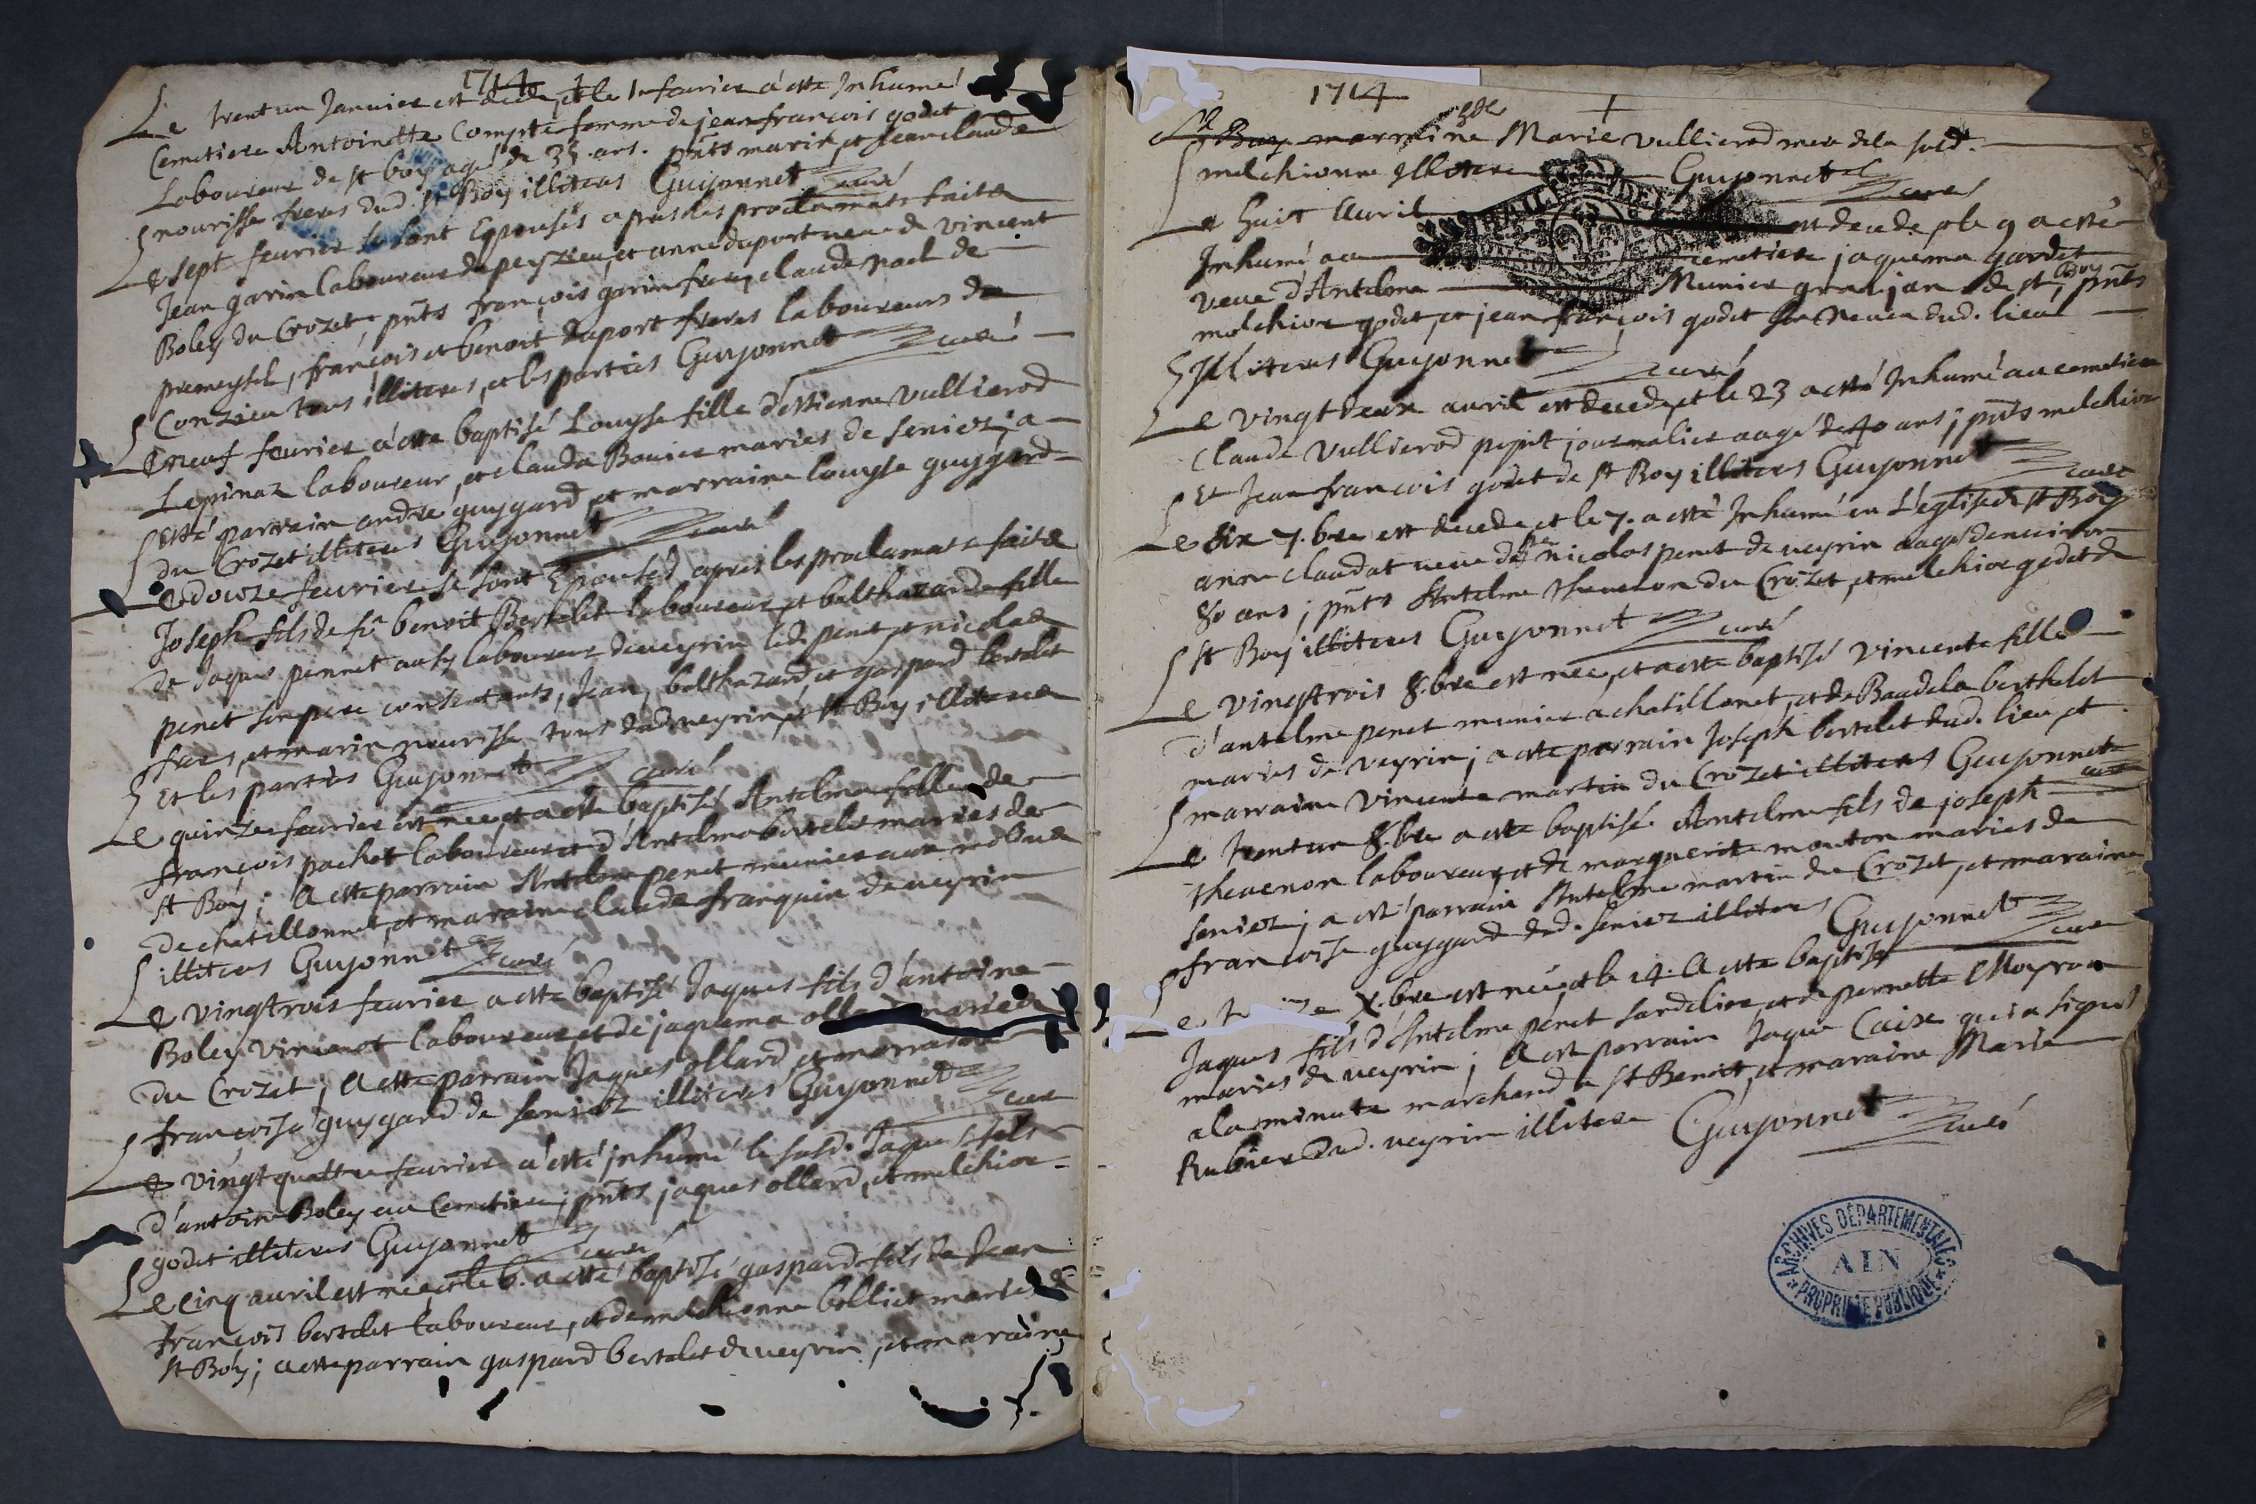 1714
Le trent un Janvier est decede, et le 1r fevrier a esté Inhumé
Cemetiere Antoinette Compte femme de jean françois godet
Laboureur de st boy agé de 35. ans. pnts marin, et Jean claude
nourisse freres dud. st Boy illiteres Guyonnet curé
Le sept fevrier se sont Epousés apres les proclamats faites
Jean garin laboureur de peyzieu, et anne duport veuve de vincent
Boley du Crozet, pnts françois garin claude de
premeysel, françois et benoit duport freres laboureurs de
Conzieu tous illiteres, et les parties Guyonnet curé
Le neuf fevrier a este baptisé Louyse fille d'estienne vullierod
Lepinaz laboureur, et claudа Bovier mariés de seniez; a
esté parrain andre guygard, et marraine louyse guygard
du Crozet illiteres Guyonnet curé
Le douze fevrier se sont Epousés apres les proclamats faites
Joseph fils de fû benoit Bertelet laboureur, et balthazarde fille
de Jaques pennet aussy laboureur de veyrin led. penet, et nicolas
penet son pere consentants, Jean, balthazard, et gaspard bertelet
freres, et marin nourisse tous dud. veyrin, et st Boy illiteres
Et les parties Guyonnet curé
Le quinze fevrier est née, et a esté baptisée Antelme fille de
françois pachot laboureur et d'Antelme bertelet mariés de
st Boy; A esté parrain Antelme penet munier aux molins
de chatillonnet, et maraine claude franquin de veyrin
illiteres Guyonnet curé
Le vingtrois fevrier a este baptisé Jaques fils d'antoine
Boley vincenot laboureur, et de jaquema ollard mariés
du Crozet; A esté parrain Jaques ollard, et marraine
françoise guygard de seniez illiteres Guyonnet curé
Le vingt quattre fevrier a esté inhumé le susd. Jaques fils
d'antoine Boley au Cemetiere; pnts jaques ollard, et melchior
godet illiteres Guyonnet curé
Le cinq avril est né, et le 6. a esté baptisé gaspard fils de Jean
françois bertelet laboureur, et de melchionne belliet mariés de
st Boy; a esté parrain gaspard bertelet de veyrin, et maraine
1714
Marie vullierod mere dela susd.
melchionne illitere Guyonnet curé
Le huit Avril est decede, et le 9 a esté
Inhumé au cemetiere jaquema gardet
veuve d'Antelme Munier granjan de st Boy pnts
melchior godet, et jean françois godet son neveu dud. lieu
Illiteres Guyonnet curé
Le vingt deux avril est decede, et le 23 a esté Inhumé au cemetiere
Claude vullierod pepit journalier aagé de 40 ans; pnts melchior
Et Jean françois godet de st Boy illiteres Guyonnet curé
Le six 7.bre est decede, et le 7. a esté Inhumé en L'eglise de st Boy
anne claudat veuve de nicolas penet de veyrin aagée denviron
80 ans; pnts Antelme thevenon du Crozet, et melchior godet de
st Boy illiteres Guyonnet curé
Le vingtrois 8.bre est née, et a esté baptisé vincente fille
d'antelme penet munier a chatillonet, et de Baudela berthelet
mariés de veyrin; a esté parrain Joseph bertelet dud. lieu, et
marraine vincente martin du Crozet illiteres Guyonnet curé
Le trentun 8.bre a esté baptisé Antelme fils de joseph
thevenon laboureur, et de marguerite mouton mariés de
seniez; a esté parrain Antelme martin du Crozet, et maraine
françoise guygard dud. seniez illiteres Guyonnet curé
Le X.bre est né, et le 14. A esté baptisé
Jaques fils d'Antelme penet sandelier, et de pernette Moyroux
mariés de veyrin; A esté parrain Jaque Caise qui a signé
a la minute marchand a st Benoit, et maraine Marie
Rubier dud. veyrin illitere Guyonnet curé
ARCHIVES DÉPARTEMENTALES
AIN
PROPRIÉTÉ PUBLIQUE